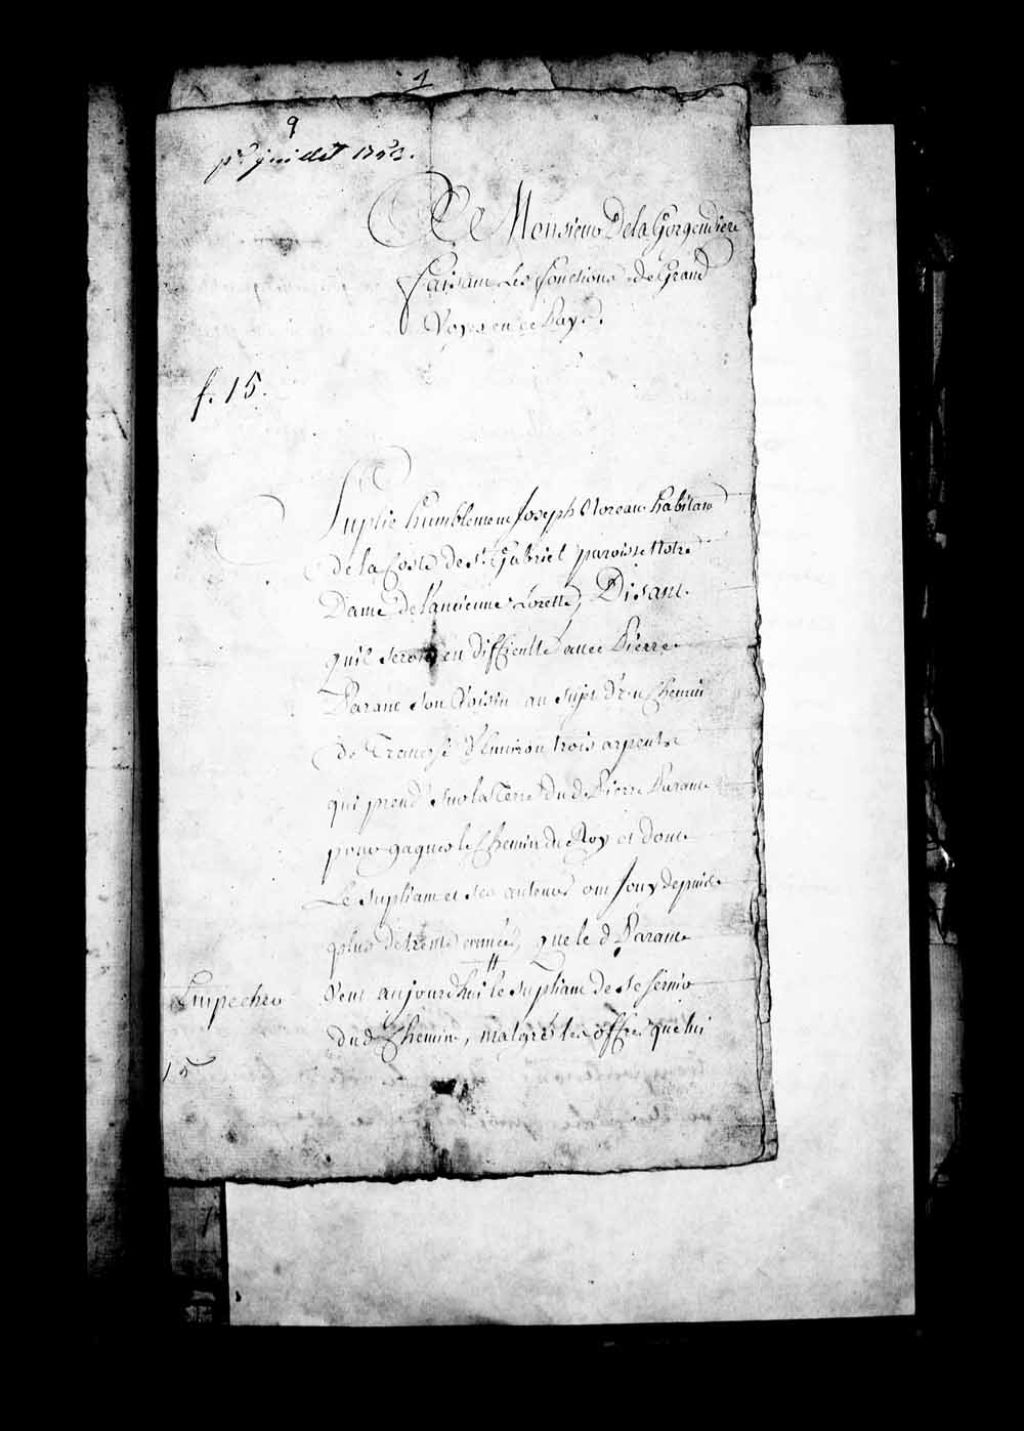 1
9
pr juillet 1753.
A Monsieur Dela Gorgendiere
faisant Les fonctions de Grand
Voyer en ce Pays.
f. 15.
Suplie humblement Joseph Moreau habitant
de la Coste de St. Gabriel paroisse Notre
Dame de l'ancienne Lorette, Disant
quil seroit en difficulté avec Pierre
Parant son Voisin au sujet d'un Chemin
de Traverse d'Environ trois arpents
qui prend sur la Terre dud. Pierre Parant
pour gagner le Chemin du Roy et dont
Le supliant et ses auteurs ont Jouy depuis
plus de trente années, que le d. Parant
Empecher
Veut aujourdhui // le supliant de se servir
dud. Chemin, malgré les offres que lui
15